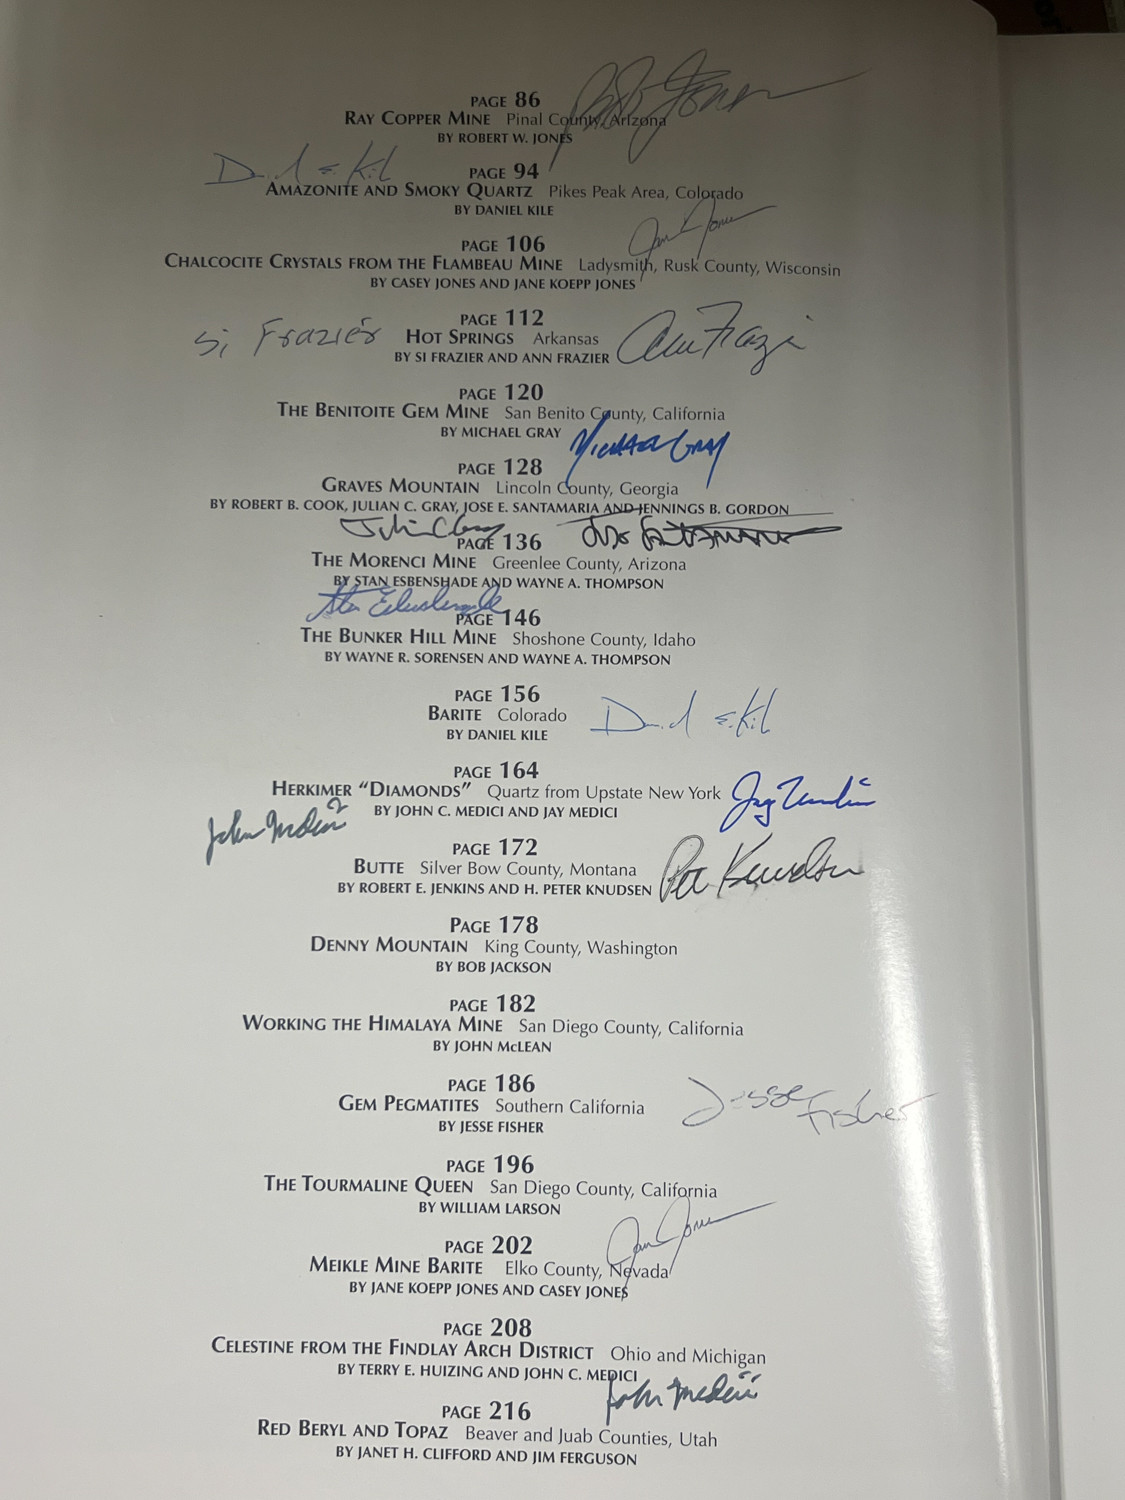 PAGE 86
Bob Jones
RAY COPPER MINE Pinal County, Arizona
BY ROBERT W. JONES
David E. Kil
PAGE 94
AMAZONITE AND SMOKY QUARTZ Pikes Peak Area, Colorado
BY DANIEL KILE
Jane Jones
PAGE 106
CHALCOCITE CRYSTALS FROM THE FLAMBEAU MINE Ladysmith, Rusk County, Wisconsin
BY CASEY JONES AND JANE KOEPP JONES
PAGE 112
Si Frazier HOT SPRINGS Arkansas Ann Frazier
BY SI FRAZIER AND ANN FRAZIER
PAGE 120
THE BENITOITE GEM MINE San Benito County, California
BY MICHAEL GRAY Michael Gray
PAGE 128
GRAVES MOUNTAIN Lincoln County, Georgia
BY ROBERT B. COOK, JULIAN C. GRAY, JOSE E. SANTAMARIA AND JENNINGS B. GORDON
Julian C Gray Jose Santamaria
PAGE 136
THE MORENCI MINE Greenlee County, Arizona
BY STAN ESBENSHADE AND WAYNE A. THOMPSON
Stan Esbenshade
PAGE 146
THE BUNKER HILL MINE Shoshone County, Idaho
BY WAYNE R. SORENSEN AND WAYNE A. THOMPSON
PAGE 156
BARITE Colorado
BY DANIEL KILE
PAGE 164
HERKIMER “DIAMONDS” Quartz from Upstate New York Jay Medici
BY JOHN C. MEDICI AND JAY MEDICI
John Medici
PAGE 172
BUTTE Silver Bow County, Montana
BY ROBERT E. JENKINS AND H. PETER KNUDSEN Pete Knudsen
PAGE 178
DENNY MOUNTAIN King County, Washington
BY BOB JACKSON
PAGE 182
WORKING THE HIMALAYA MINE San Diego County, California
BY JOHN McLEAN
PAGE 186
GEM PEGMATITES Southern California Jesse Fisher
BY JESSE FISHER
PAGE 196
THE TOURMALINE QUEEN San Diego County, California
BY WILLIAM LARSON
Jane Jones
PAGE 202
MEIKLE MINE BARITE Elko County, Nevada
BY JANE KOEPP JONES AND CASEY JONES
PAGE 208
CELESTINE FROM THE FINDLAY ARCH DISTRICT Ohio and Michigan
BY TERRY E. HUIZING AND JOHN C. MEDICI
John Medici
PAGE 216
RED BERYL AND TOPAZ Beaver and Juab Counties, Utah
BY JANET H. CLIFFORD AND JIM FERGUSON